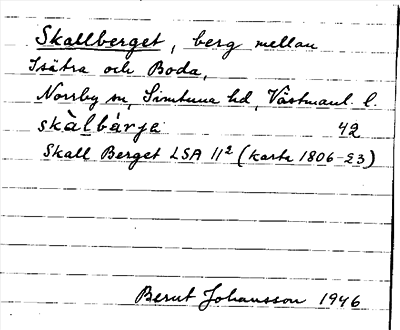 Skallberget, berg mellan
Isätra och Boda,
Norrby sn, Simtuna hd, Västmanl. l.
skàlbárja 42
Skall Berget LSA 11² (karta 1806-23)
Bernt Johansson 1946